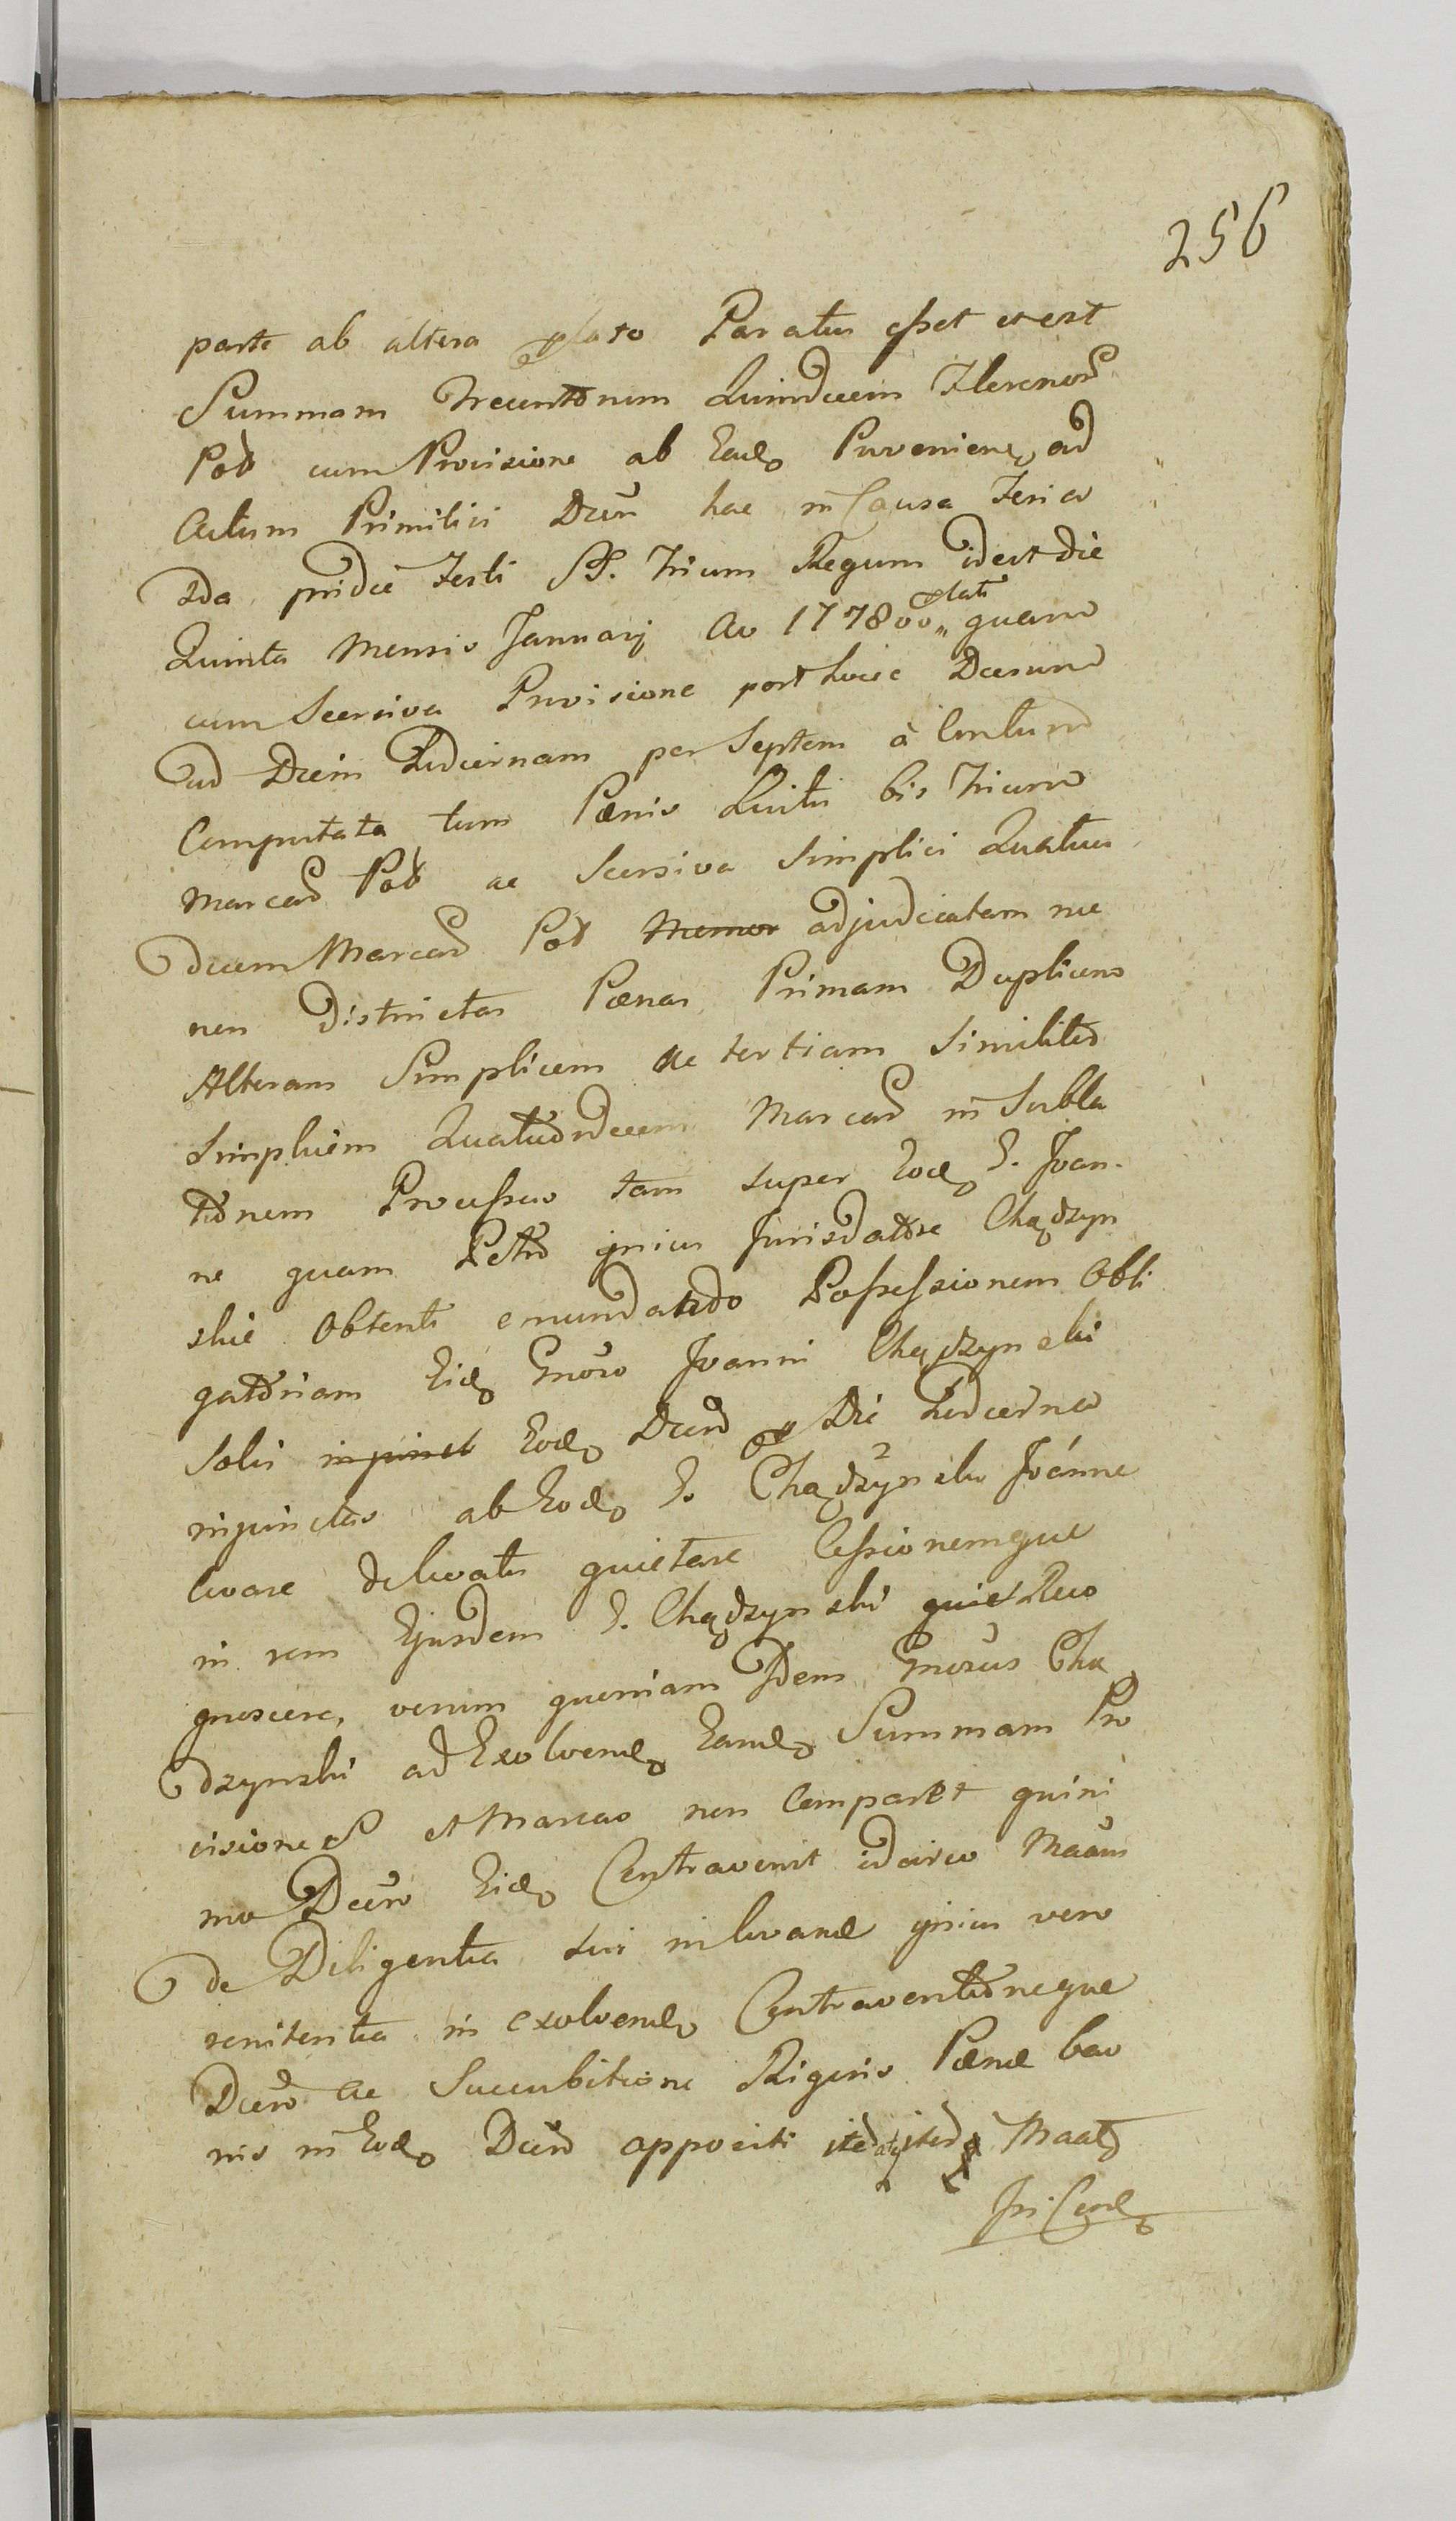 256
parte ab altera plato Paratus esset et est
Summam Trecentorum Quindecim Florenor
Pol cum Provisione ab Eade Proveniens ad
Actum Primitivi Decti hac in Causa Feria
2da pridie Festi SS. Trium Regum idest die
Quinta Mensis Januarij Ao 1778vo plati quam
cum Secursiva Provisione post hocce Decrum
ad Diem Hodiernam per Septem à Centum
Computata tum Pænis Luiti bis Trium
Marcar Pol ac Secursiva Simplici Quatuor
decem Marcar Pol Memor adjudicatam nec
non districtas Pænas Primam Duplicem
Alteram Simplicem ac tertiam Similiter
Simplicem Quatuordecem Marcar in Subla
tionem Processus tam super Eode G. Joan-
ne quam Petro ipsius Jurisdatore Chądzyn
skie Obtenti emundando Possessionem Obli
gatoriam Eide Gnoso Joanni Chądzynski
Solis injunct Eode Decro pro Die Hodierna
injunctas ab Eode G. Chądzynski Joánne
levare delevatis quietare Cessionemque
in rem Ejusdem G. Chądzynski quiet Reco
gnoscere, verum quoniam Idem Gnosus Chą
dzynski ad Exolvend Eande Summam Pro
visiones et Marcas non Comparet quini
mo Decro Eide Contravenit idcirco Maam
de Diligentia sui in levand ipsius vero
renitentia in exolvend Contraventioneque
Decro ac Succubitione Rigoris Pænæ ban
nis in Eode Decro appositi
Maats
In Cond